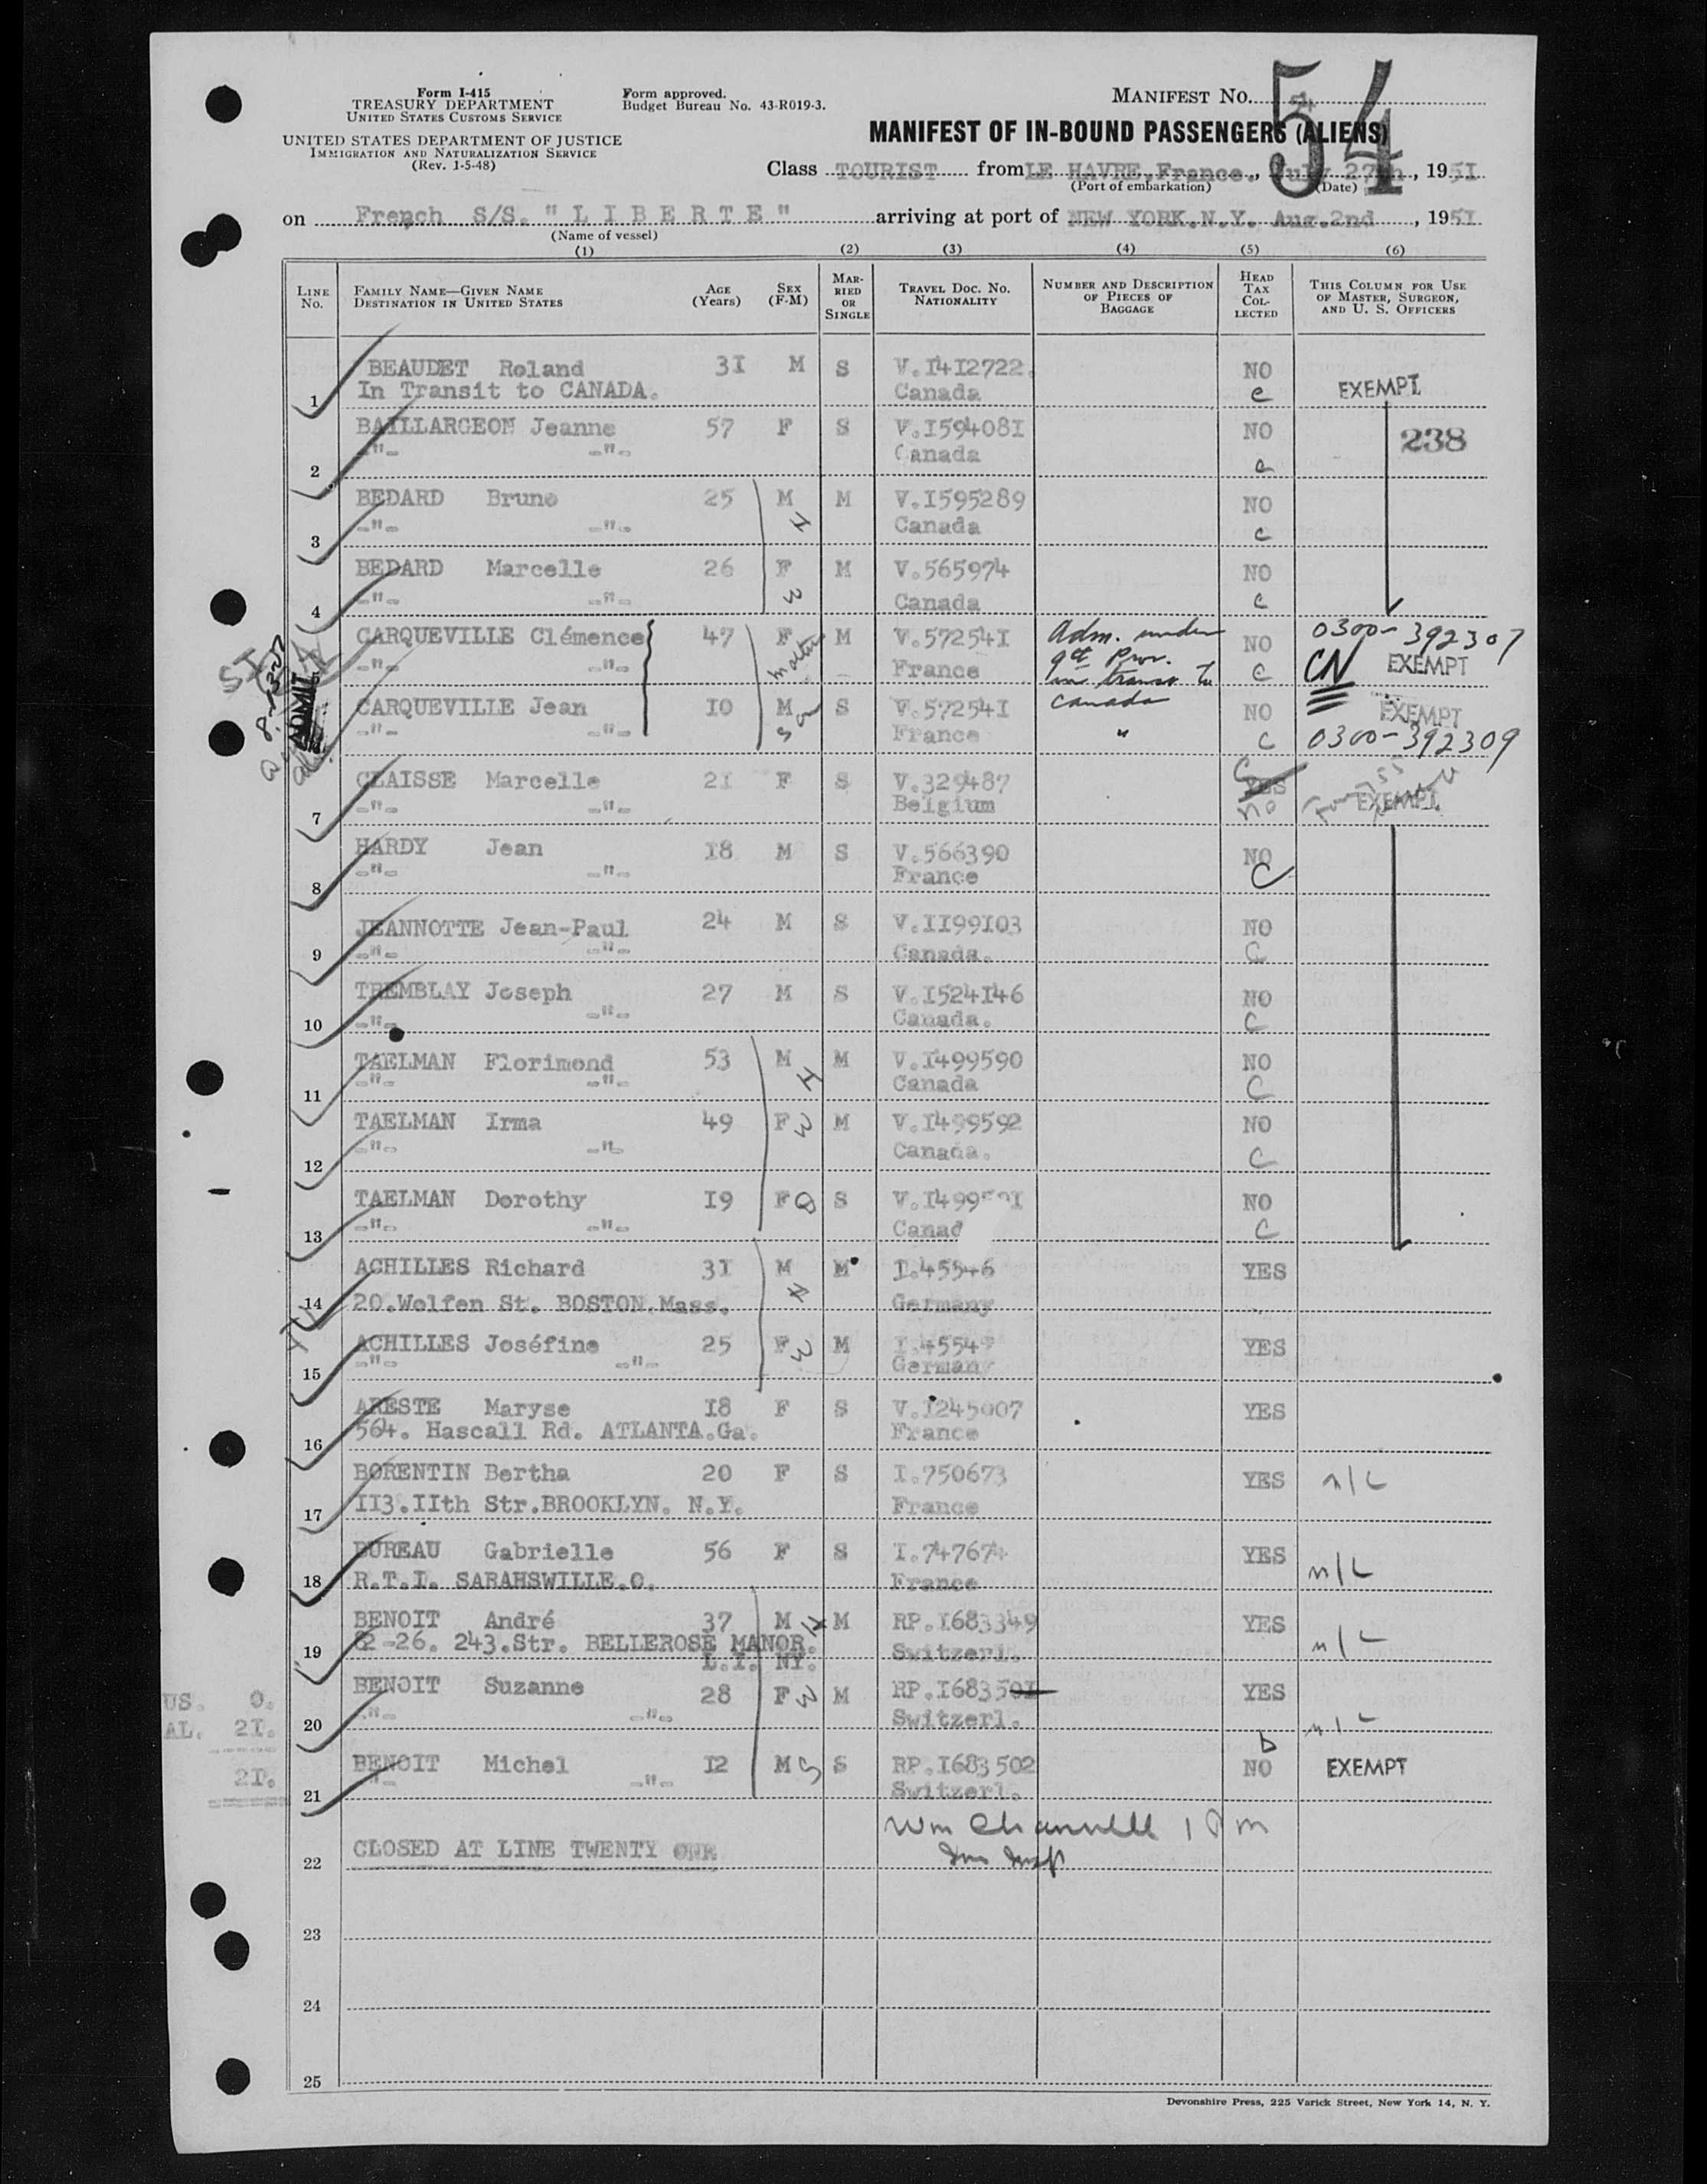 Form I-415
TREASURY DEPARTMENT
UNITED STATES CUSTOMS SERVICE
UNITED STATES DEPARTMENT OF JUSTICE
IMMIGRATION AND NATURALIZATION SERVICE
(Rev. 1-5-48)
Form approved.
Budget Bureau No. 43-R019-3.
MANIFEST NO. 54
54
MANIFEST OF IN-BOUND PASSENGERS (ALIENS)
Class TOURIST from LE HAVRE,France. , July 27th , 1951
(Port of embarkation) (Date)
on French S/S. " L I B E R T E " arriving at port of NEW YORK.N.Y. Aug.2nd , 1951
(Name of vessel)
(1) (2) (3) (4) (5) (6)
LINE No. FAMILY NAME—GIVEN NAME DESTINATION IN UNITED STATES AGE (Years) SEX (F-M) MARRIED OR SINGLE TRAVEL DOC. NO. NATIONALITY NUMBER AND DESCRIPTION OF PIECES OF BAGGAGE HEAD TAX COLLECTED THIS COLUMN FOR USE OF MASTER, SURGEON, AND U. S. OFFICERS
BEAUDET Roland 3I M S V.I4I2722. NO
1 In Transit to CANADA. Canada c EXEMPT
BAILLARGEON Jeanne 57 F S V.I59408I NO 238
2 -"- -"- Canada c
BEDARD Bruno 25 M H M V.I595289 NO
3 -"- -"- Canada c
BEDARD Marcelle 26 F W M V.565974 NO
4 -"- -"- Canada c
CARQUEVILLE Clémence 47 F mother M V.57254I Adm. under NO 0300-392307
-"- -"- France 9th Prov. in transit to c CN EXEMPT
SI ADMIT
CARQUEVILLE Jean IO M son S V.57254I Canada NO EXEMPT
-"- -"- France " c 0300-392309
CLAISSE Marcelle 2I F S V.329487 YES c
7 -"- -"- Belgium no EXEMPT
HARDY Jean I8 M S V.566390 NO
8 -"- -"- France C
JEANNOTTE Jean-Paul 24 M S V.II99I03 NO
9 -"- -"- Canada. C
TREMBLAY Joseph 27 M S V.I524I46 NO
10 -"- -"- Canada. C
TAELMAN Florimond 53 M H M V.I499590 NO
11 -"- -"- Canada C
TAELMAN Irma 49 F W M V.I499592 NO
12 -"- -"- Canada. C
TAELMAN Dorothy I9 F D S NO
13 -"- -"- C
ACHILLES Richard 3I M H M I.45546 YES
14 20.Wolfen St. BOSTON.Mass. Germany
ACHILLES Joséfine 25 F W M YES
15 -"- -"- Germany
ARESTE Maryse I8 F S V.I245007 YES
16 564. Hascall Rd. ATLANTA.Ga. France
BORENTIN Bertha 20 F S I.750673 YES n/L
17 II3.IIth Str.BROOKLYN. N.Y. France
BUREAU Gabrielle 56 F S I.747674 YES n/L
18 R.T.I. SARAHSWILLE.O. France
BENOIT André 37 M H M RP.I683349 YES n/L
19 82-26. 243.Str. BELLEROSE MANOR. Switzerl.
L.I. NY.
BENOIT Suzanne 28 F W M RP.I68350I YES
20 -"- -"- Switzerl. n/L
BENOIT Michel I2 M S S RP.I683502 b NO EXEMPT
21 -"- -"- Switzerl.
US. 0.
AL. 2I.
2I.
Wm Channell
22 CLOSED AT LINE TWENTY ONE Imm Insp
23
24
25
Devonshire Press, 225 Varick Street, New York 14, N. Y.